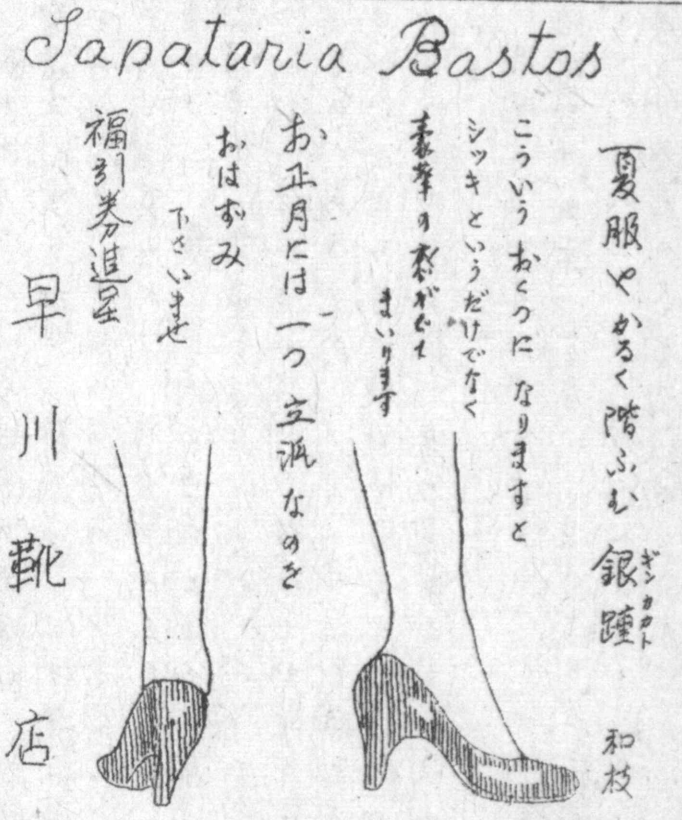 Sapataria Bastos
夏服やかるく階ふむ銀踵 和枝
ギンカカト
こういうおくつになりますと
シツキというだけでなく
豪華の感がでて
まいります
お正月には一つ立派なのを
おはずみ
下さいませ
福引券進呈
早川靴店